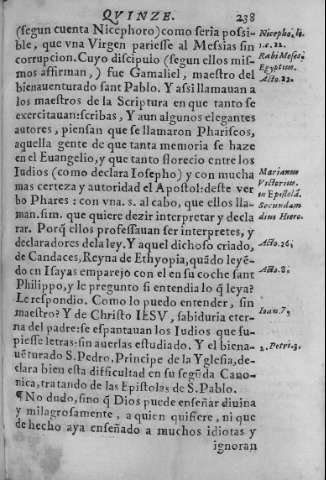 QVINZE. 238
(segun cuenta Nicephoro) como seria possi-
ble, que vna Virgen pariesse al Messias sin
corrupcion. Cuyo discipulo (segun ellos mis-
mos affirman,) fue Gamaliel, maestro del
bienauenturado sant Pablo. Y assi llamauan a
los maestros de la Scriptura en que tanto se
exercitauan: scribas, Y aun algunos elegantes
autores, piensan que se llamaron Phariseos,
aquella gente de que tanta memoria se haze
en el Euangelio, y que tanto florecio entre los
Iudios (como declara Iosepho) y con mucha
mas certeza y autoridad el Apostol: deste ver
bo Phares: con vna. s. al cabo, que ellos lla-
man. sim. que quiere dezir interpretar y decla
rar. Porq̃ ellos professauan ser interpretes, y
declaradores de la ley. Y aquel dichoso criado,
de Candaces, Reyna de Ethyopia, quãdo leyẽ-
do en Isayas emparejo con el en su coche sant
Philippo, y le pregunto si entendia lo q̃ leya?
Le respondio. Como lo puedo entender, sin
maestro? Y de Christo IESV, sabiduria eter-
na del padre: se espantauan los Iudios que su-
piesse letras: sin auerlas estudiado. Y el biena-
uẽturado S. Pedro, Principe de la Yglesia, de-
clara bien esta difficultad en su segũda Cano-
nica, tratando de las Epistolas de S. Pablo.
¶ No dudo, sino q̃ Dios puede enseñar diuina
y milagrosamente, a quien quisiere, ni que
de hecho aya enseñado a muchos idiotas y
ignoran
Nicepho. li.
1. c. 22.
Rabi Moses,
Egyptius.
Acto. 22.
Marianus
Victorius.
in Epistolã.
Secundam
diui Hiero.
Acto. 26.
Acto. 8.
Ioan. 7.
2. Petri. 3.